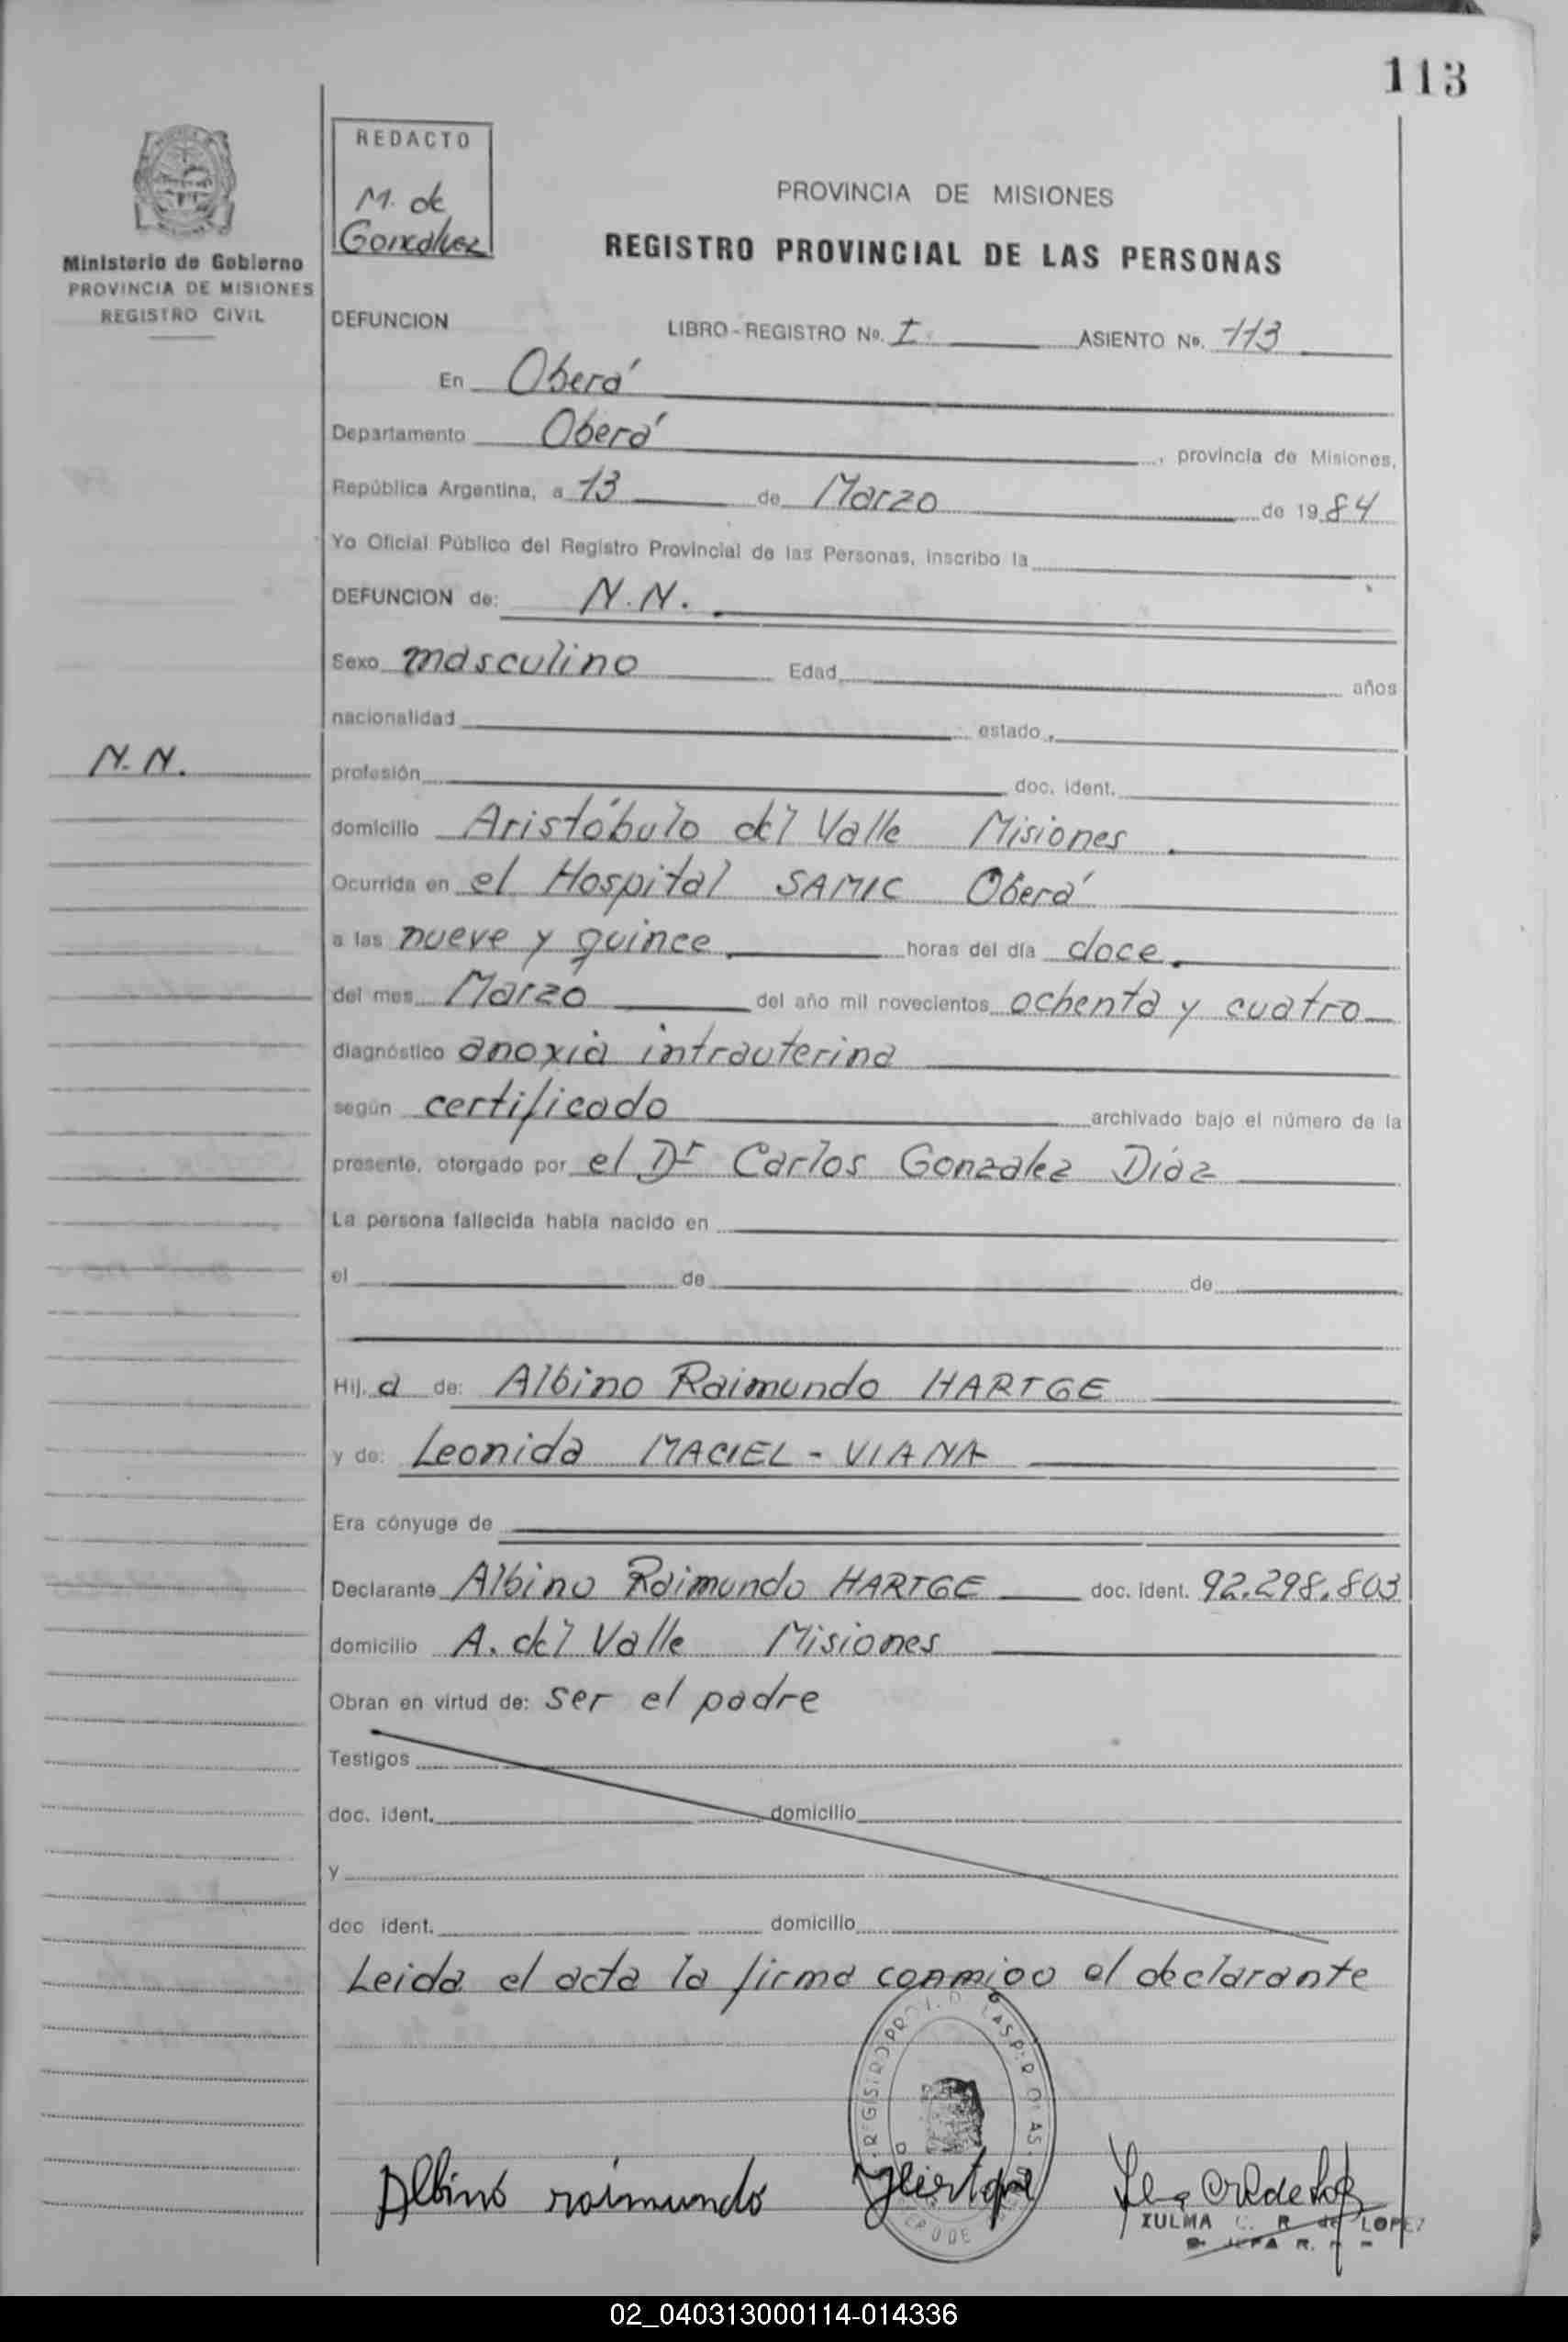 113
REDACTO
M. de
Goncalvez
Ministerio de Gobierno
PROVINCIA DE MISIONES
REGISTRO CIVIL
PROVINCIA DE MISIONES
REGISTRO PROVINCIAL DE LAS PERSONAS
DEFUNCION LIBRO-REGISTRO Nº. I ASIENTO Nº. 113
En Oberá
Departamento Oberá, provincia de Misiones,
República Argentina, a 13 de Marzo de 1984
Yo Oficial Público del Registro Provincial de las Personas, inscribo la
DEFUNCION de: N.N.
Sexo masculino Edad años
nacionalidad estado
N.N.
profesión doc. ident.
domicilio Aristóbulo del Valle Misiones
Ocurrida en el Hospital SAMIC Oberá
a las nueve y quince horas del día doce
del mes Marzo del año mil novecientos ochenta y cuatro
diagnóstico anoxia intrauterina
según certificado archivado bajo el número de la
presente, otorgado por el Dr Carlos Gonzalez Díaz
La persona fallecida había nacido en
el de de
Hij. a de: Albino Raimundo HARTGE
y de: Leonida MACIEL - VIANA
Era cónyuge de
Declarante Albino Raimundo HARTGE doc. ident. 92.298.803
domicilio A. del Valle Misiones
Obran en virtud de: ser el padre
Testigos
doc. ident. domicilio
y
doc ident. domicilio
Leida el acta la firma conmigo el declarante
Albino raimundo
ZULMA C. R. de LOPEZ
02_040313000114-014336